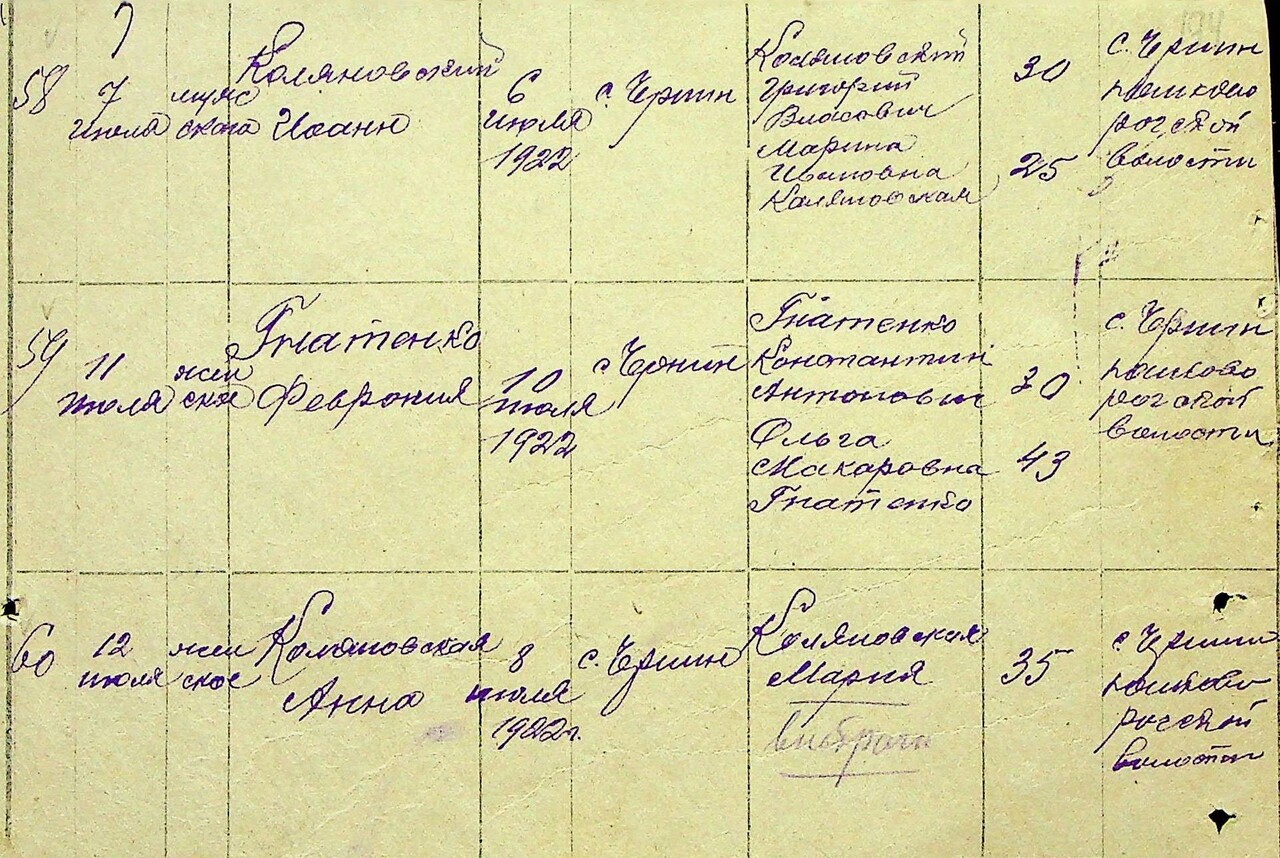 7
58
7
июля
мужс
ского
Коляновский
Иоанн
6
июля
1922
с. Чернин
Коляновский
Григорий
Власович
Марина
Ивановна
Коляновская
30
25
с. Чернин
волости
59
11
июля
жен
ское
Гнатенко
Феврония
10
июля
1922
с. Чернин
Гнатенко
Константин
Антонович
Ольга
Макаровна
Гнатенко
30
43
с. Чернин
волости
60
12
июля
жен
ское
Коляновская
Анна
8
июля
1922г.
с. Чернин
Коляновская
Мария
внебрачн
35
с. Чернин
волости